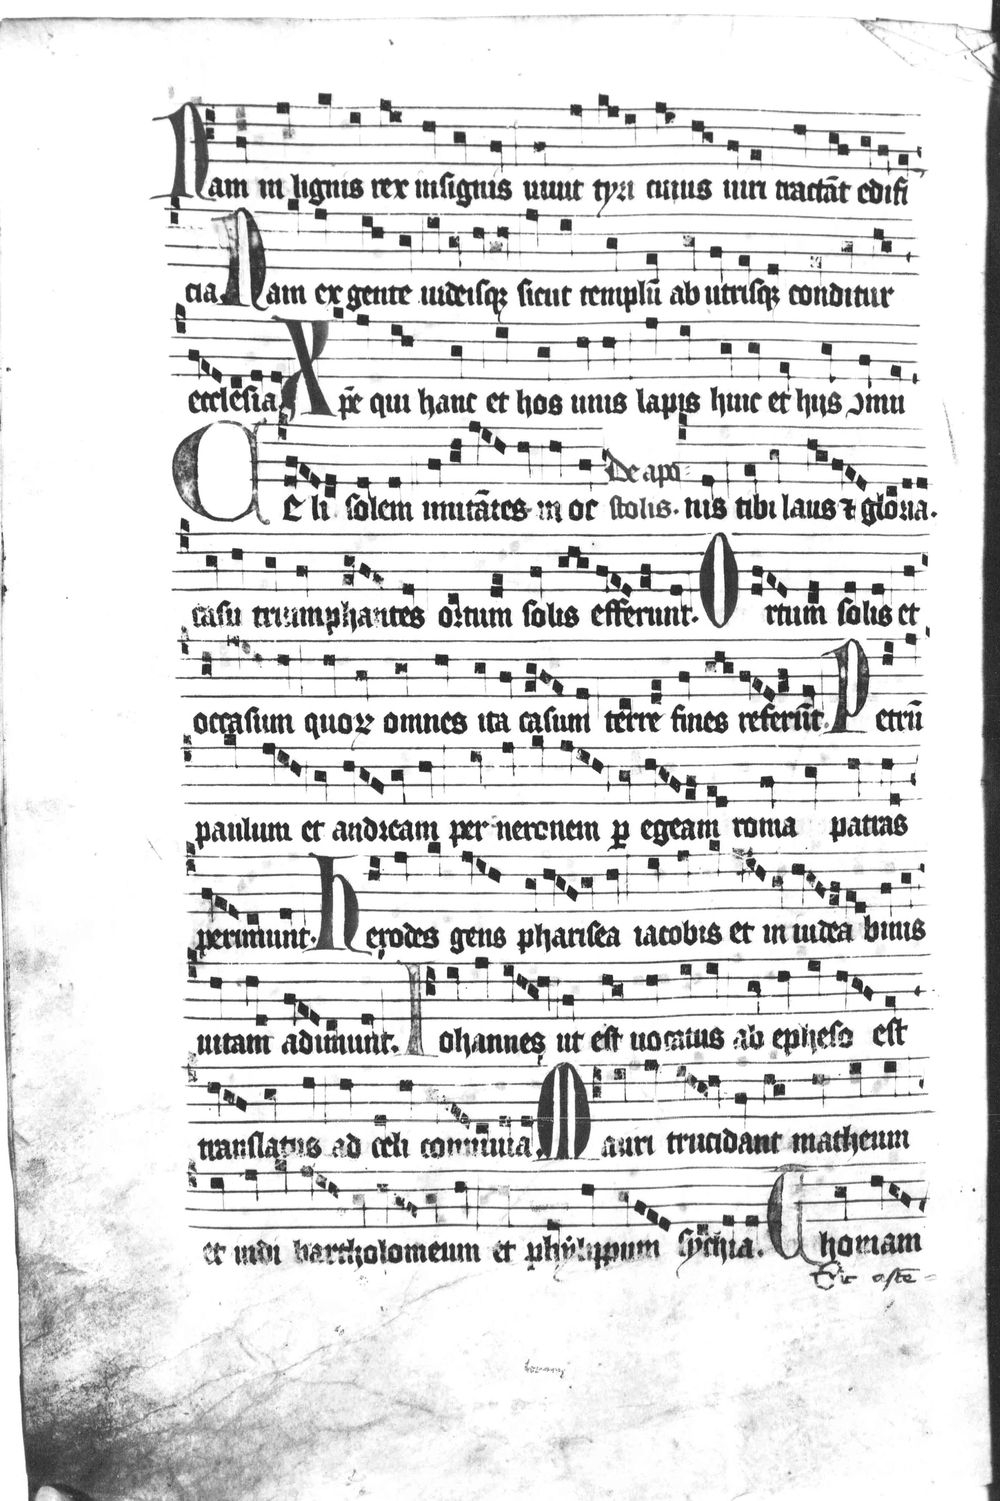 Nam in lignis rex insignis iuuit tyri cuius uiri tractāt edifi
cia. Nam ex gente iudeisqꝫ sicut templū ab utrisqꝫ conditur
ecclesia. Xpē qui hanc et hos unis lapis huic et hijs ꝯmu
De apo-
Celi solem imitātes in oc stolis. nis tibi laus ⁊ gloria.
casu triumphantes ortum solis efferunt. Ortum solis et
occasum quoꝝ omnes ita casum terre fines referūt. Petrū
paulum et andream per neronem ꝑ egeam roma patras
perimunt. Herodes gens pharisea iacobis et in iudea binis
uitam adimunt. Iohannes ut est uocatus ab epheso est
translatus ad celi conuiuia. Mauri trucidant matheum
et indi bartholomeum et phylippum sychia. Thomam
Sic oste-